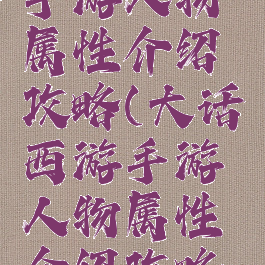 手游人物
属性介绍
攻略(大话
西游手游
人物属性
介绍攻略